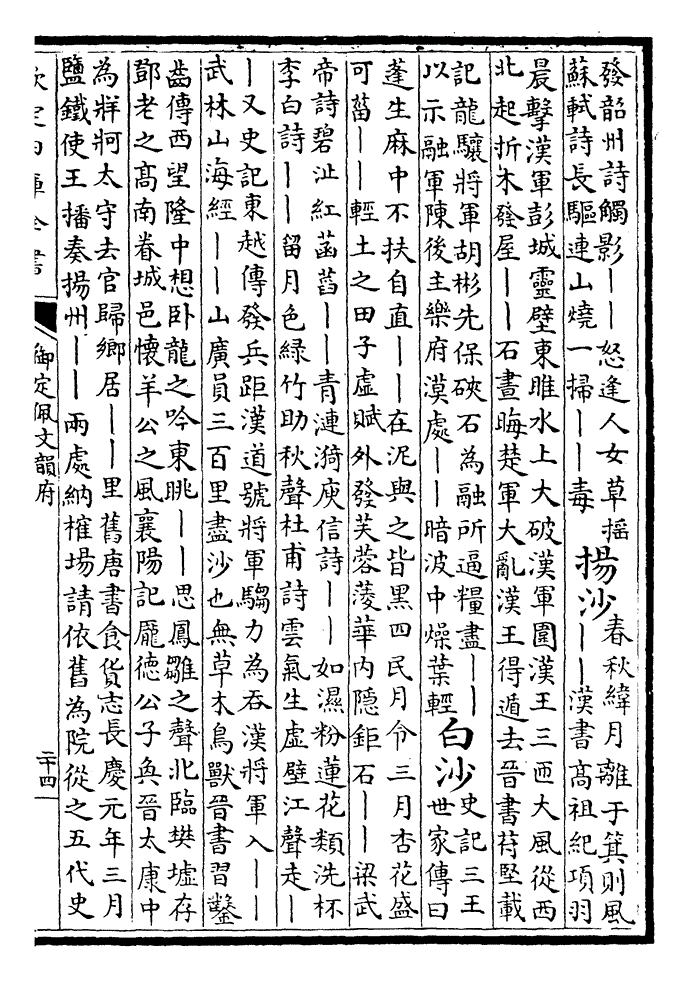 發韶州詩觸影｜｜怒逢人女草摇
蘇軾詩長驅連山燒一掃｜｜毒
揚沙
春秋緯月離于箕則風
｜｜漢書高祖紀項羽
晨擊漢軍彭城靈壁東睢水上大破漢軍圍漢王三匝大風從西
北起折木發屋｜｜石晝晦楚軍大亂漢王得遁去晉書苻堅載
記龍驤將軍胡彬先保硤石為融所逼糧盡｜｜
以示融軍陳後主樂府漠處｜｜暗波中燥葉輕
白沙
史記三王
世家傳曰
蓬生麻中不扶自直｜｜在泥與之皆黑四民月令三月杏花盛
可菑｜｜輕土之田子虛賦外發芙蓉蔆華内隱鉅石｜｜梁武
帝詩碧沚紅菡萏｜｜青漣漪庾信詩｜｜如濕粉蓮花類洗杯
李白詩｜｜留月色綠竹助秋聲杜甫詩雲氣生虛壁江聲走｜
｜又史記東越傳發兵距漢道號將軍騶力為吞漢將軍入｜｜
武林山海經｜｜山廣員三百里盡沙也無草木鳥獸晉書習鑿
齒傳西望隆中想卧龍之吟東眺｜｜思鳳雛之聲北臨樊墟存
鄧老之高南眷城邑懷羊公之風襄陽記龎德公子奐晉太康中
為牂牁太守去官歸鄉居｜｜里舊唐書食貨志長慶元年三月
鹽鐵使王播奏揚州｜｜兩處納榷場請依舊為院從之五代史
欽定四庫全書
御定佩文韻府
二十四